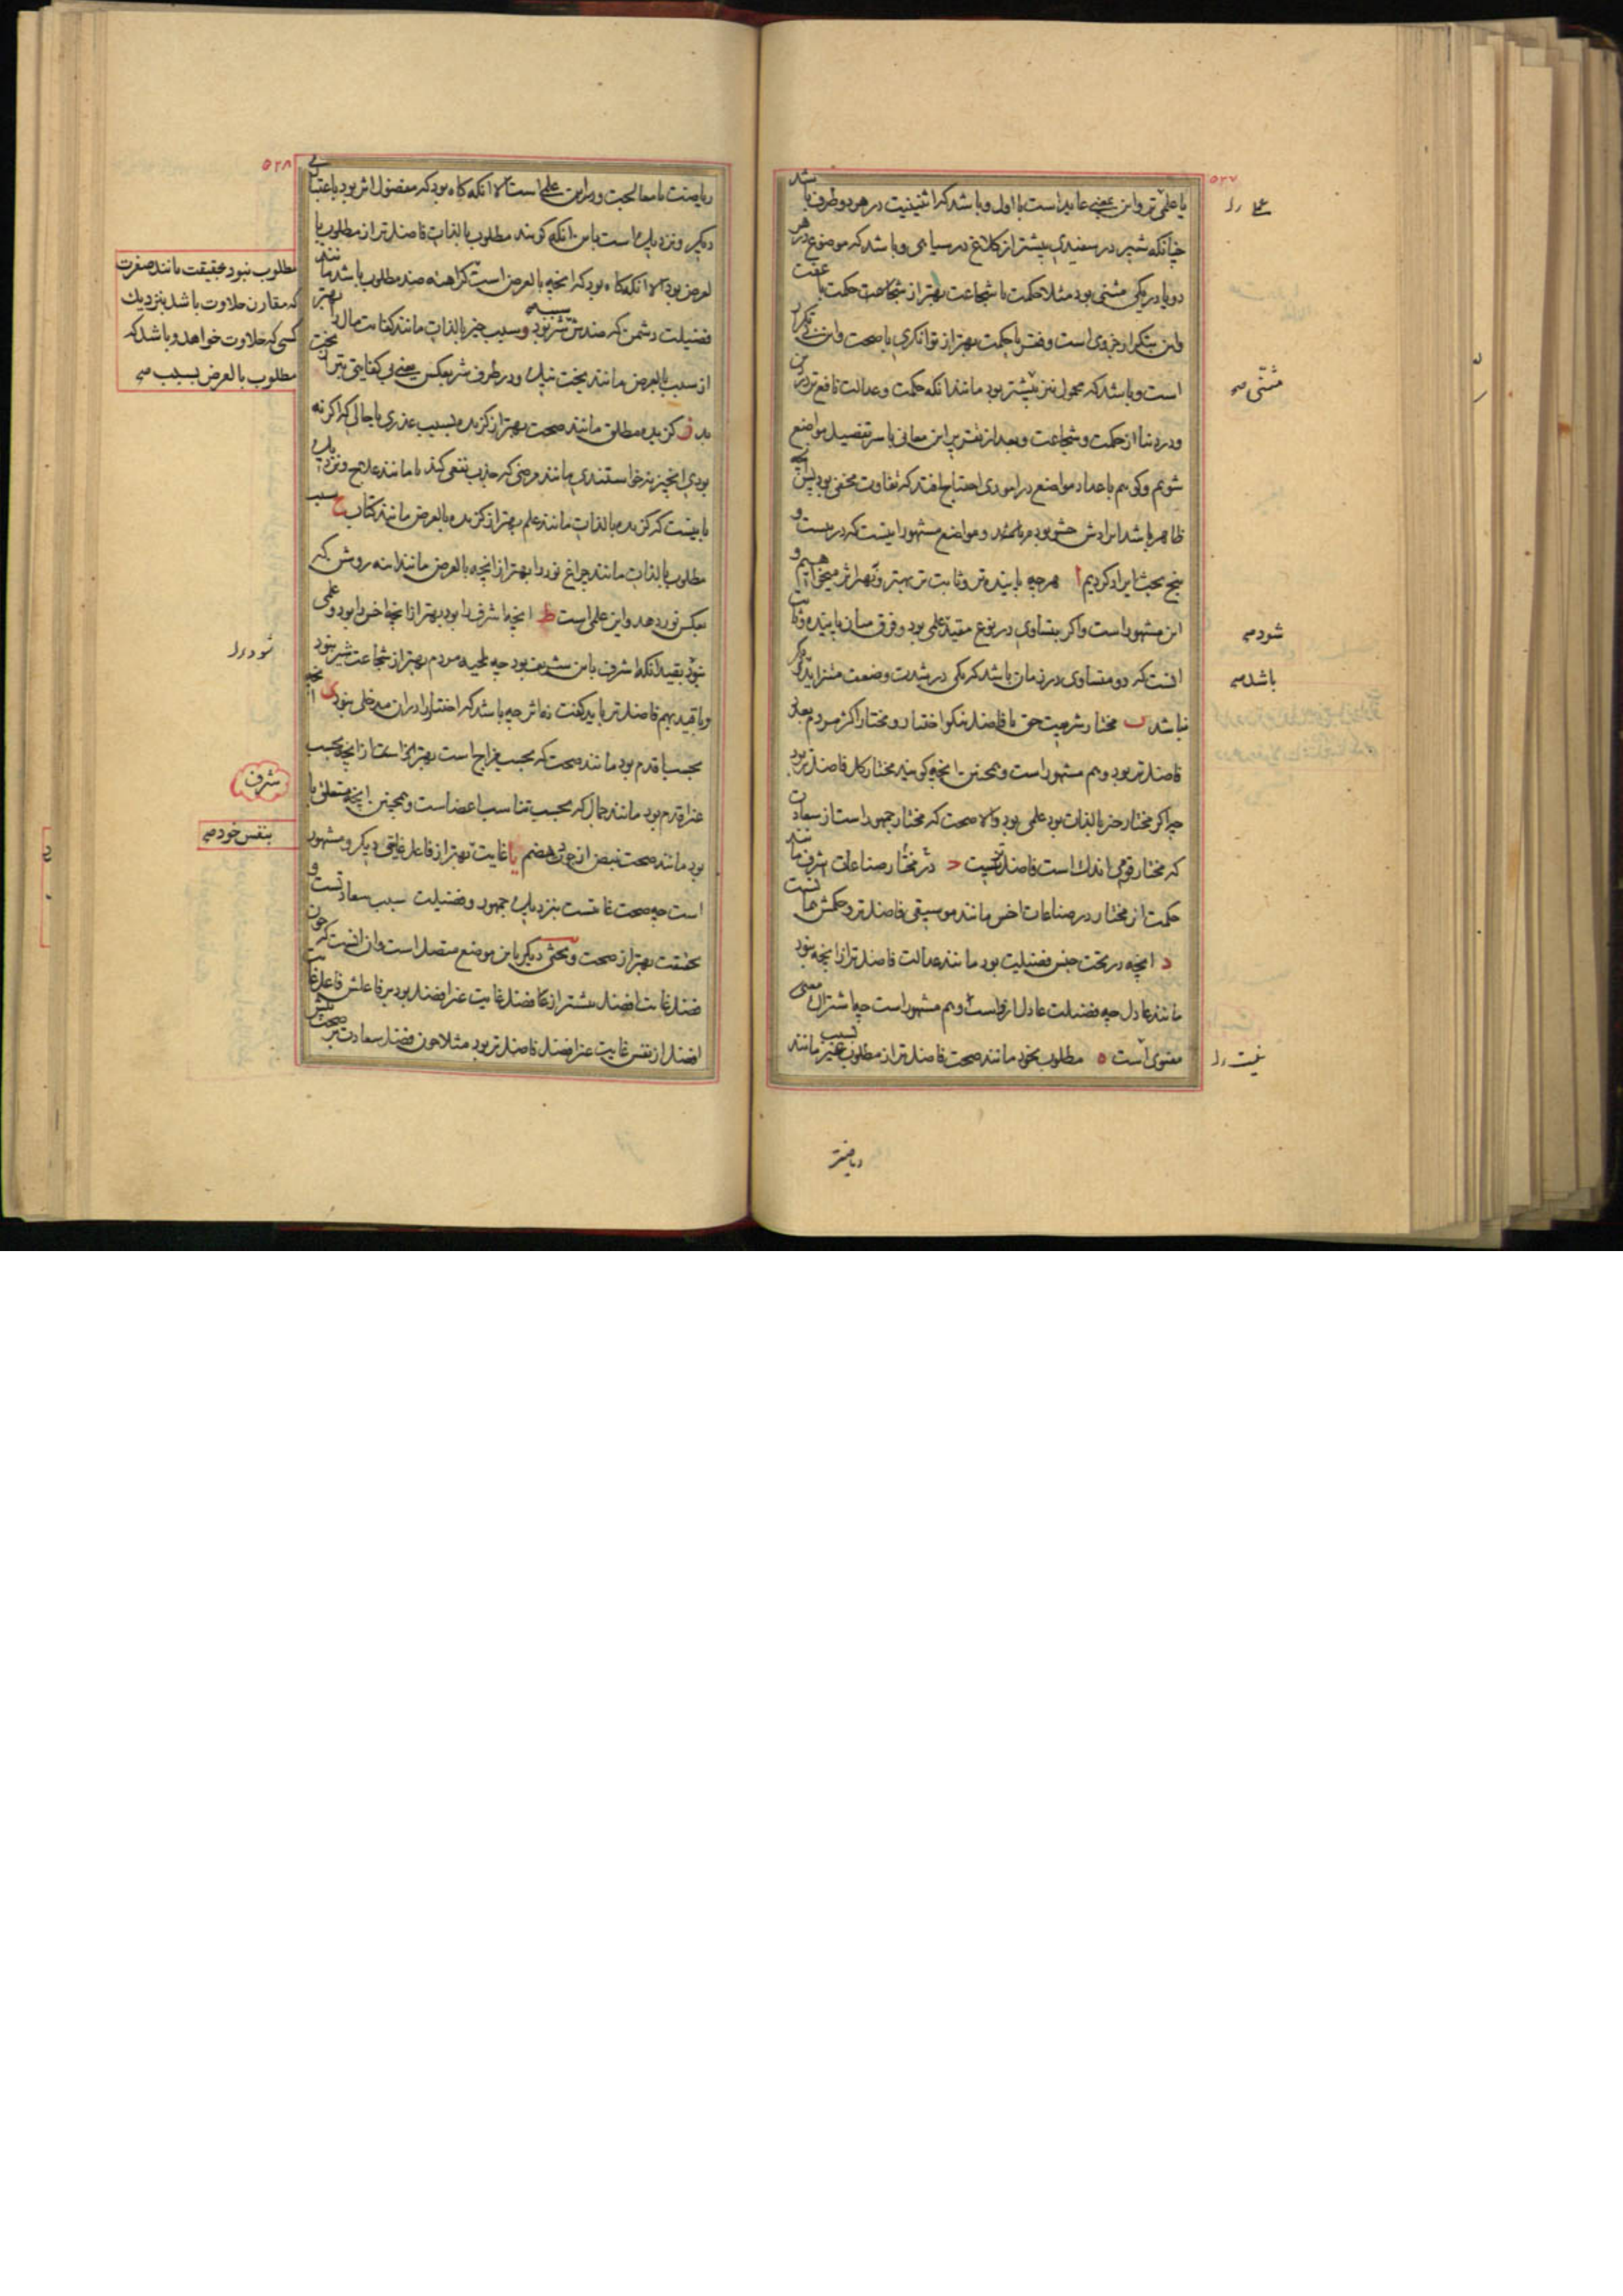 ٥٢٧
یا علمی‌تر و این معنی عاید است با اول و باشد که اثنینیت در هر دو طرف باشد
چنانکه شیر در سفیدی بیشتر از کلاغ در سیاهی و باشد که موضوع در هر
دو یا در یکی مثنی بود مثلا حکمت با شجاعت بهتر از شجاعت حکمت با عفت
است و باشد که محمول نیز بیشتر بود مانند آنکه حکمت و عدالت نافع‌تر در
و در دنیا از حکمت و شجاعت و بعد از تقریر این معانی با سر تفصیل مواضع
شویم و گوییم باعداد مواضع در اموری احتیاج افتد که تفاوت مخفی بود پس آنچه
ظاهر باشد ایرادش حشو بود و مواضع مشهور اینست که در بیست و
پنج بحث ایراد کردیم ا هرچه پاینده‌تر و ثابت‌تر بهتر و
این مشهور است و اگر بتساوی در نوع مقید علمی بود و فرق میان پاینده و ثابت
آنست که دو متساوی در زمان باشد که یکی در شدت و ضعف متزاید
نباشد ب مختار شریعت حق یا فاضل نیکو اختیار و مختار اکثر مردم یعنی
فاضل‌تر بود و هم مشهور است و همچنین آنچه گویند مختار کل فاضل‌تر بود
چه اگر مختار خیر بالذات بود علمی بود والا صحت که مختار جمهور است از سعادت
که مختار قومی اندک است فاضل‌تر نیست ج در مختار صناعات اشرف مانند
حکمت از مختار در صناعات اخس مانند موسیقی فاضل‌تر و حکمش همانست
د آنچه در تحت جنس فضیلت بود مانند عدالت فاضل‌تر از آنچه نبود
مانند عادل چه فضیلت عادل ازوست و هم مشهور است چه اشتراک معنی
معنوی است ه مطلوب بخود مانند صحت فاضل‌تر از مطلوب بسبب غیر مانند
مثنی صح
شود صح
باشد صح
نیست ل
ریاضت
٥٢٨
ریاضت یا معالجت و برابر علمی است الا آنکه گاه بود که مفضول اثر بود باعتباری
دیگر و نزدیک است باین آنکه گویند مطلوب بالذات فاضل‌تر از مطلوب با
لعرض بود الا آنکه گاه بود که آنچه بالعرض است کراهت ضد مطلوب باشد مانند
فضیلت دشمن که ضدش شر بود و سبب خیر بالذات مانند کفایت مال را بهتر
از سبب بالعرض مانند بخت نیک و در طرف شر بعکس یعنی بی کفایتی بتر از بخت
بد و گزیده مطلق مانند صحت بهتر از گزیده بسبب عذری یا حالی که اگر نه
بودی آن چیز نخواستندی مانند مرضی که جذب نفعی کند یا مانند علاج و نزدیک
باینست که گزیده بالذات مانند علم بهتر از گزیده بالعرض مانند کتاب ح سبب
مطلوب بالذات مانند چراغ نور را بهتر از آنچه بالعرض مانند آینه روشن که
بعکس نور دهد و این علمی است ط آنچه اشرف را بود بهتر از آنچه اخس را بود و علمی
بحسب اقدم بود مانند صحت که بحسب مزاج است بهتر از آنچه بحسب
غیر اقدم بود مانند جمال که بحسب تناسب اعضاست و همچنین آنچه متعلق با
بود مانند صحت نبض از جودت هضم یا غایت بهتر از فاعل غایتی دیگر و مشهور
است چه صحت غایتست بنزدیک جمهور و فضیلت سبب سعادتست و
بحقیقت بهتر از صحت و بحثی دیگر باین موضع متصل است و آن آنست که چون
فضل غایت افضل بیشتر از فضل غایت غیر افضل بود بر فاعلش فاعل غایت
افضل از نفس غایت غیر افضل فاضل‌تر بود مثلا چون فضل سعادت بر صحت بیش
مطلوب نبود بحقیقت مانند صفرت
که مقارن حلاوت باشد بنزدیک
کسی که حلاوت خواهد و باشد که
مطلوب بالعرض بسبب صح
شود ل
شرف
بنفس خود صح